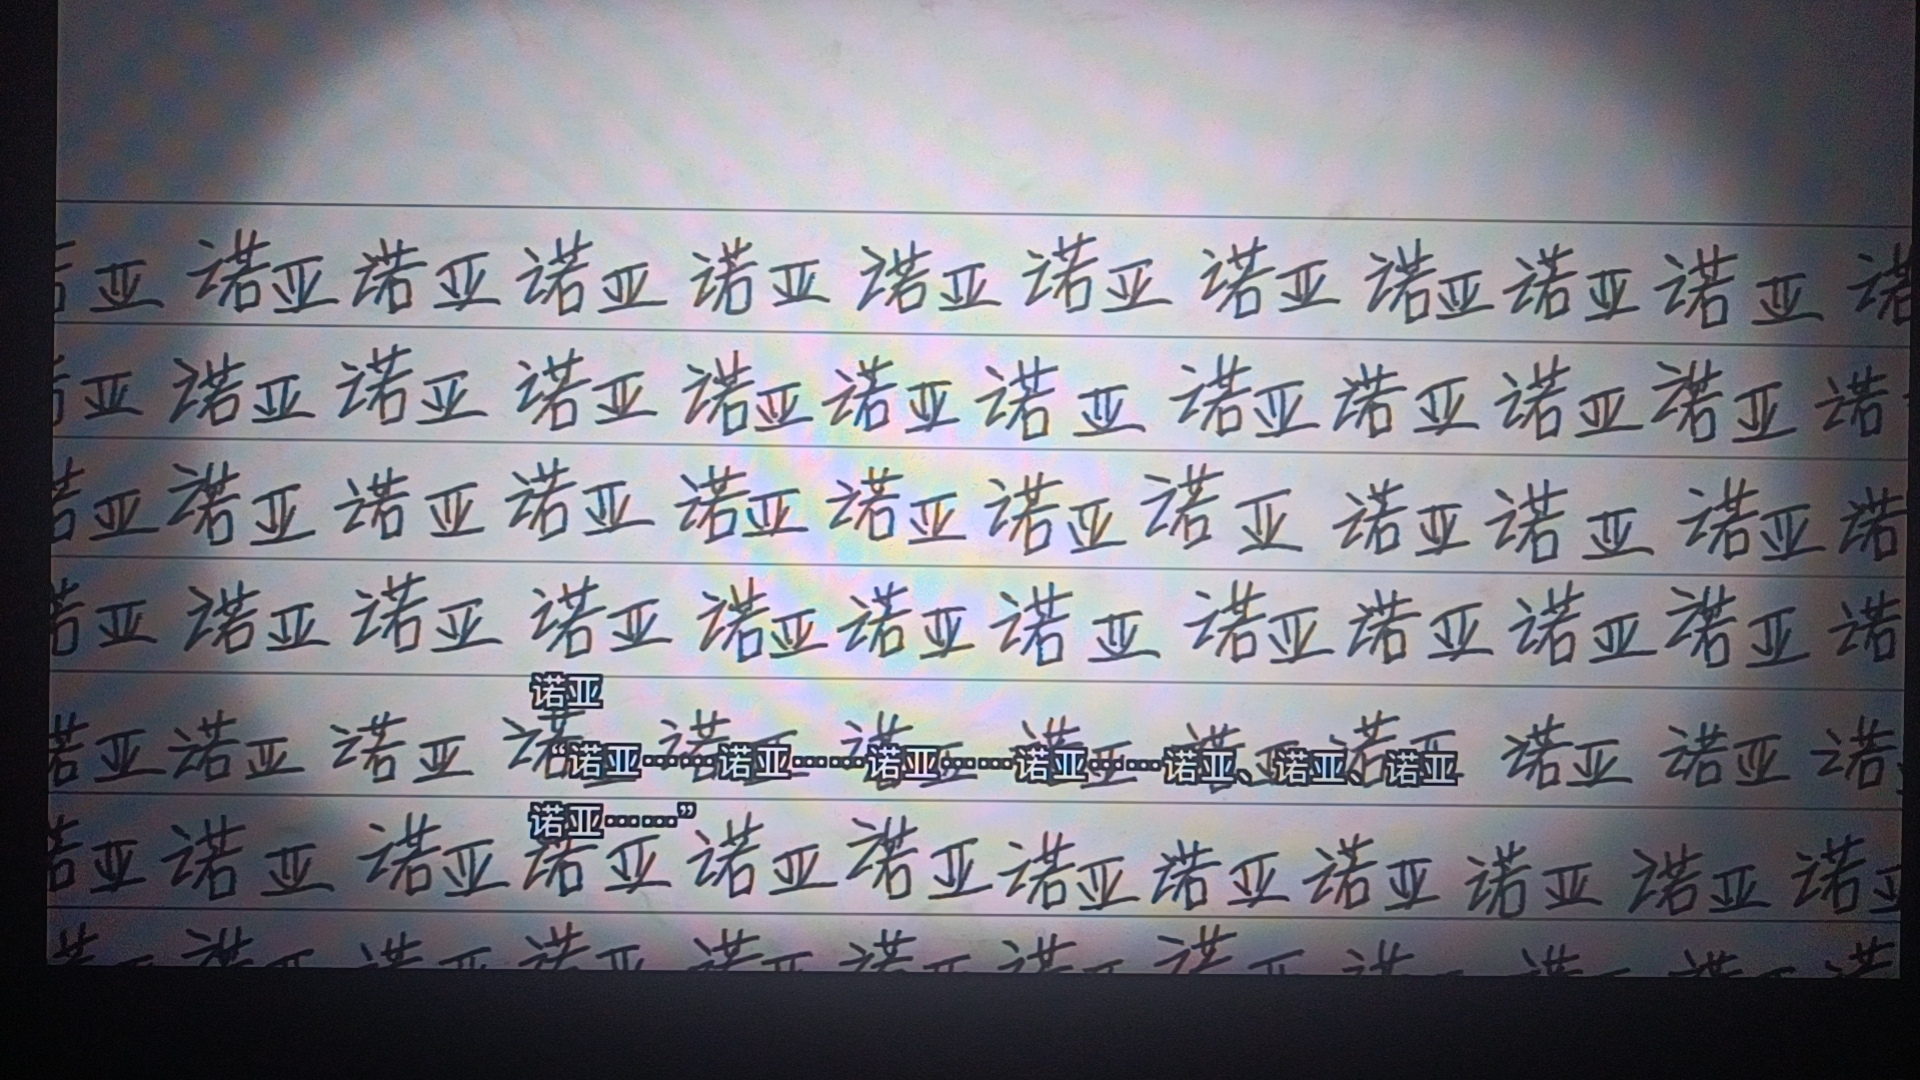 诺亚 诺亚 诺亚 诺亚 诺亚 诺亚 诺亚 诺亚 诺亚 诺亚 诺亚 诺
诺亚 诺亚 诺亚 诺亚 诺亚 诺亚 诺亚 诺亚 诺亚 诺亚 诺亚 诺
诺亚 诺亚 诺亚 诺亚 诺亚 诺亚 诺亚 诺亚 诺亚 诺亚 诺亚 诺
诺亚 诺亚 诺亚 诺亚 诺亚 诺亚 诺亚 诺亚 诺亚 诺亚 诺亚 诺
诺亚
诺亚 诺亚 诺亚 诺亚 诺亚 诺亚 诺亚 诺亚 诺亚 诺亚 诺亚 诺
“诺亚……诺亚……诺亚……诺亚……诺亚、诺亚、诺亚
诺亚……”
诺亚 诺亚 诺亚 诺亚 诺亚 诺亚 诺亚 诺亚 诺亚 诺亚 诺亚 诺亚